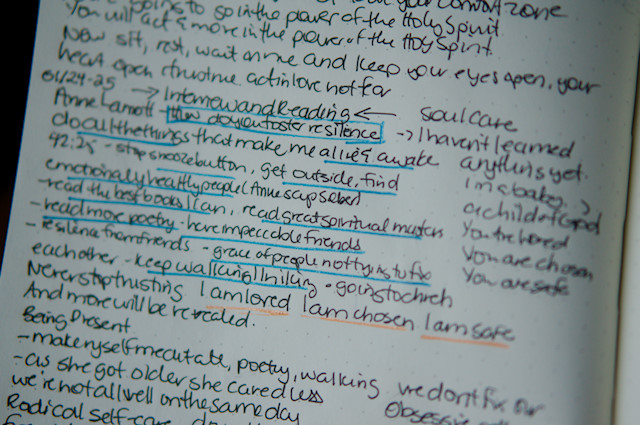 going to go in the power of the Holy Spirit
You will act & move in the power of the Holy Spirit.
Now sit, rest, wait on me and keep your eyes open, your
heart open & trust me. act in love not for
01/24-25 → Interview and Reading ← soul care
Anne Lamott - How do you foster resilence → I haven't learned
do all the things that make me alive & awake anything yet.
42:25 - stop snooze button, get outside, find I'm
emotionally healthy people (Anne says sober) a child of God
- read the best books I can, read great spiritual masters You are loved
- read more poetry - have impeccable friends You are chosen
- resilence from friends - grace of people not trying to fix You are safe
each other - keep walking/hiking - going to church
Never stop trusting I am loved I am chosen I am safe
And more will be revealed.
Being Present
- make myself meditate, poetry, walking we don't fix our
- as she got older she cared less Obsessive
we're not all well on the same day
Radical self-care